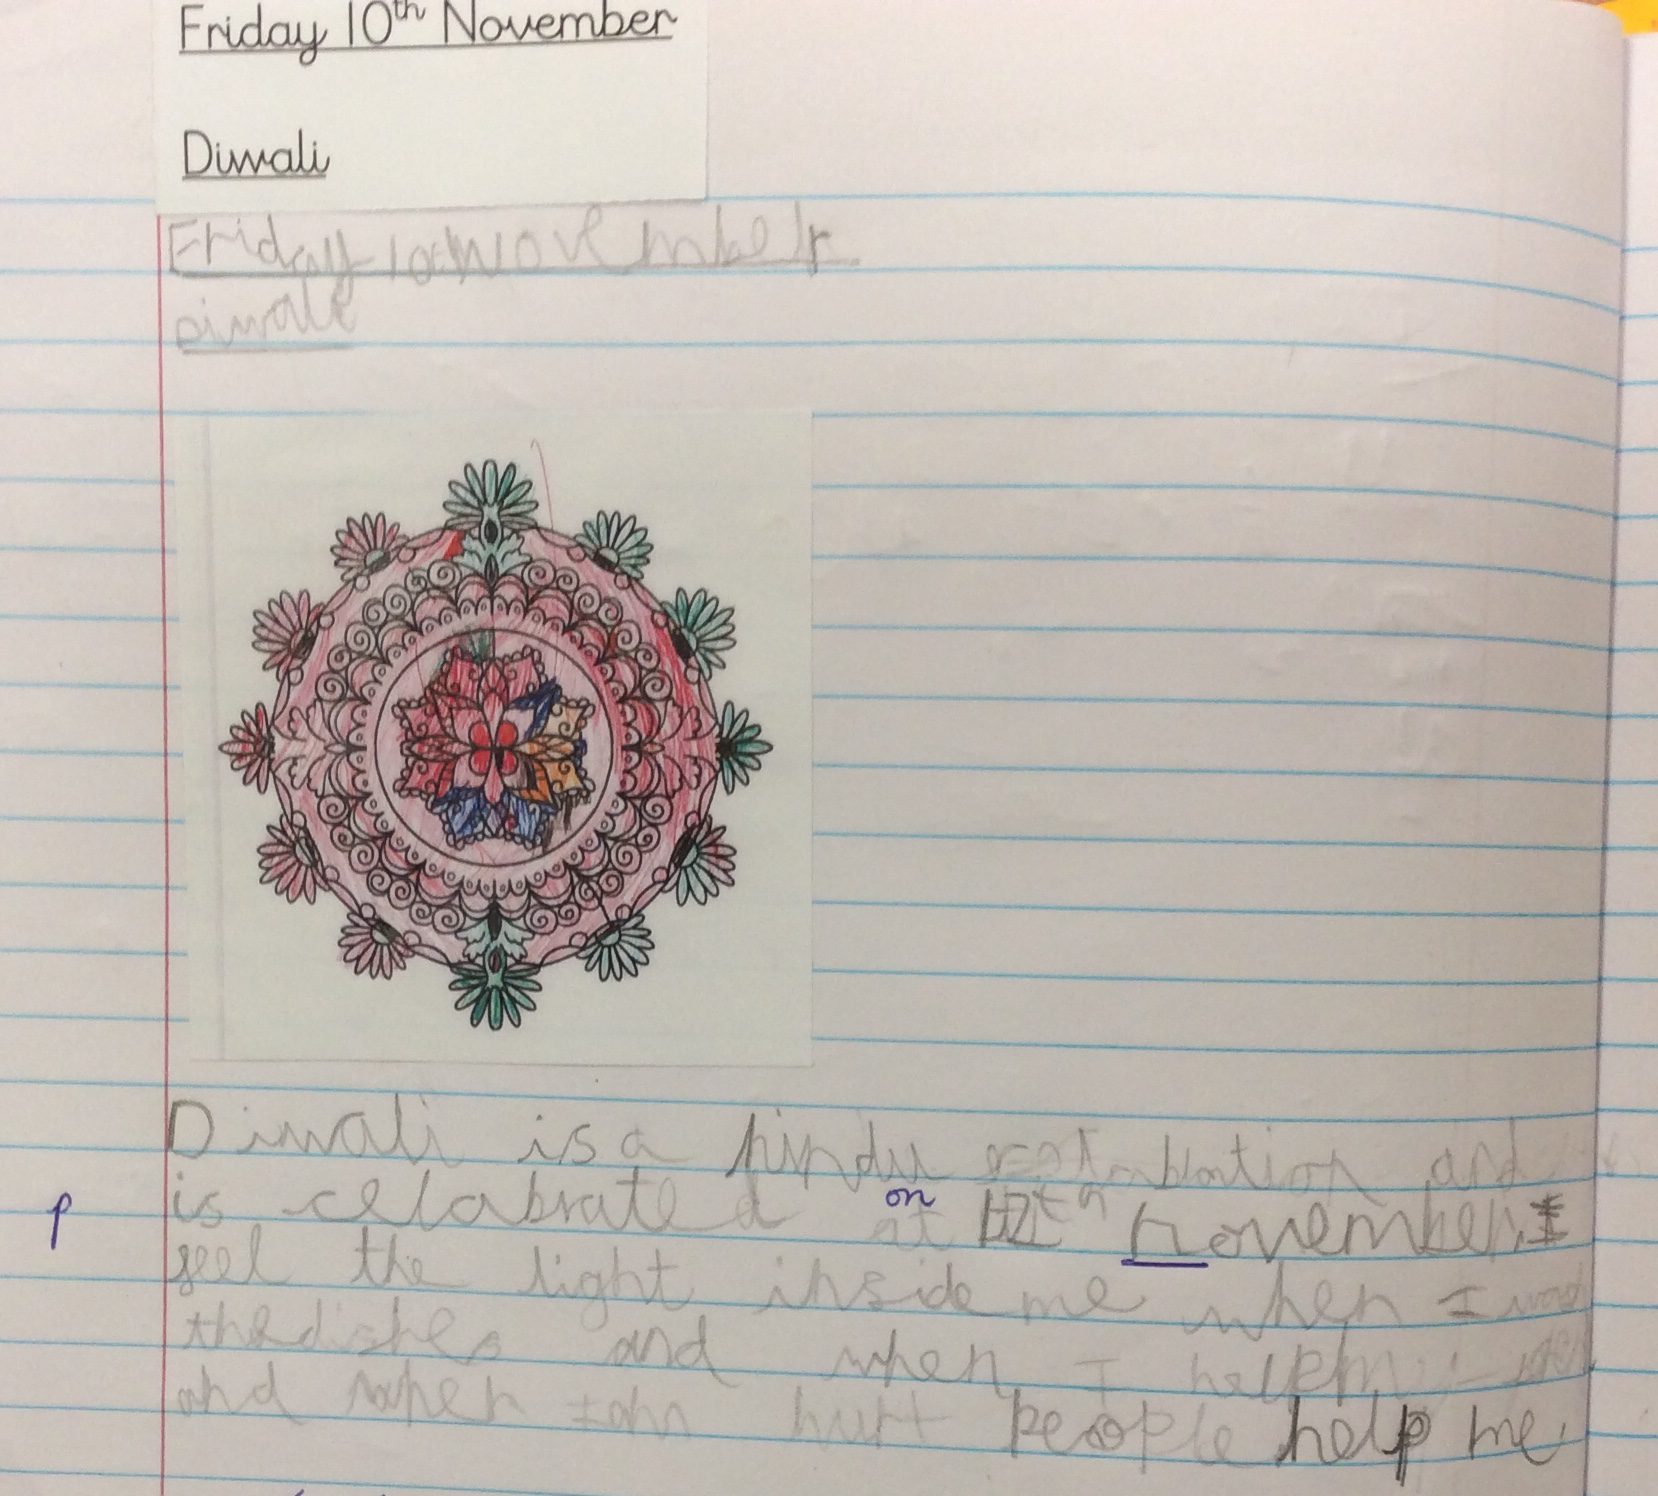 Friday 10th November
Diwali
Friday 10th November
Diwali
Diwali is a hindu and
on
p is celabrated at 12th november. I
feel the light inside me when I wash
the dishes and when I help my
and when I am hurt people help me